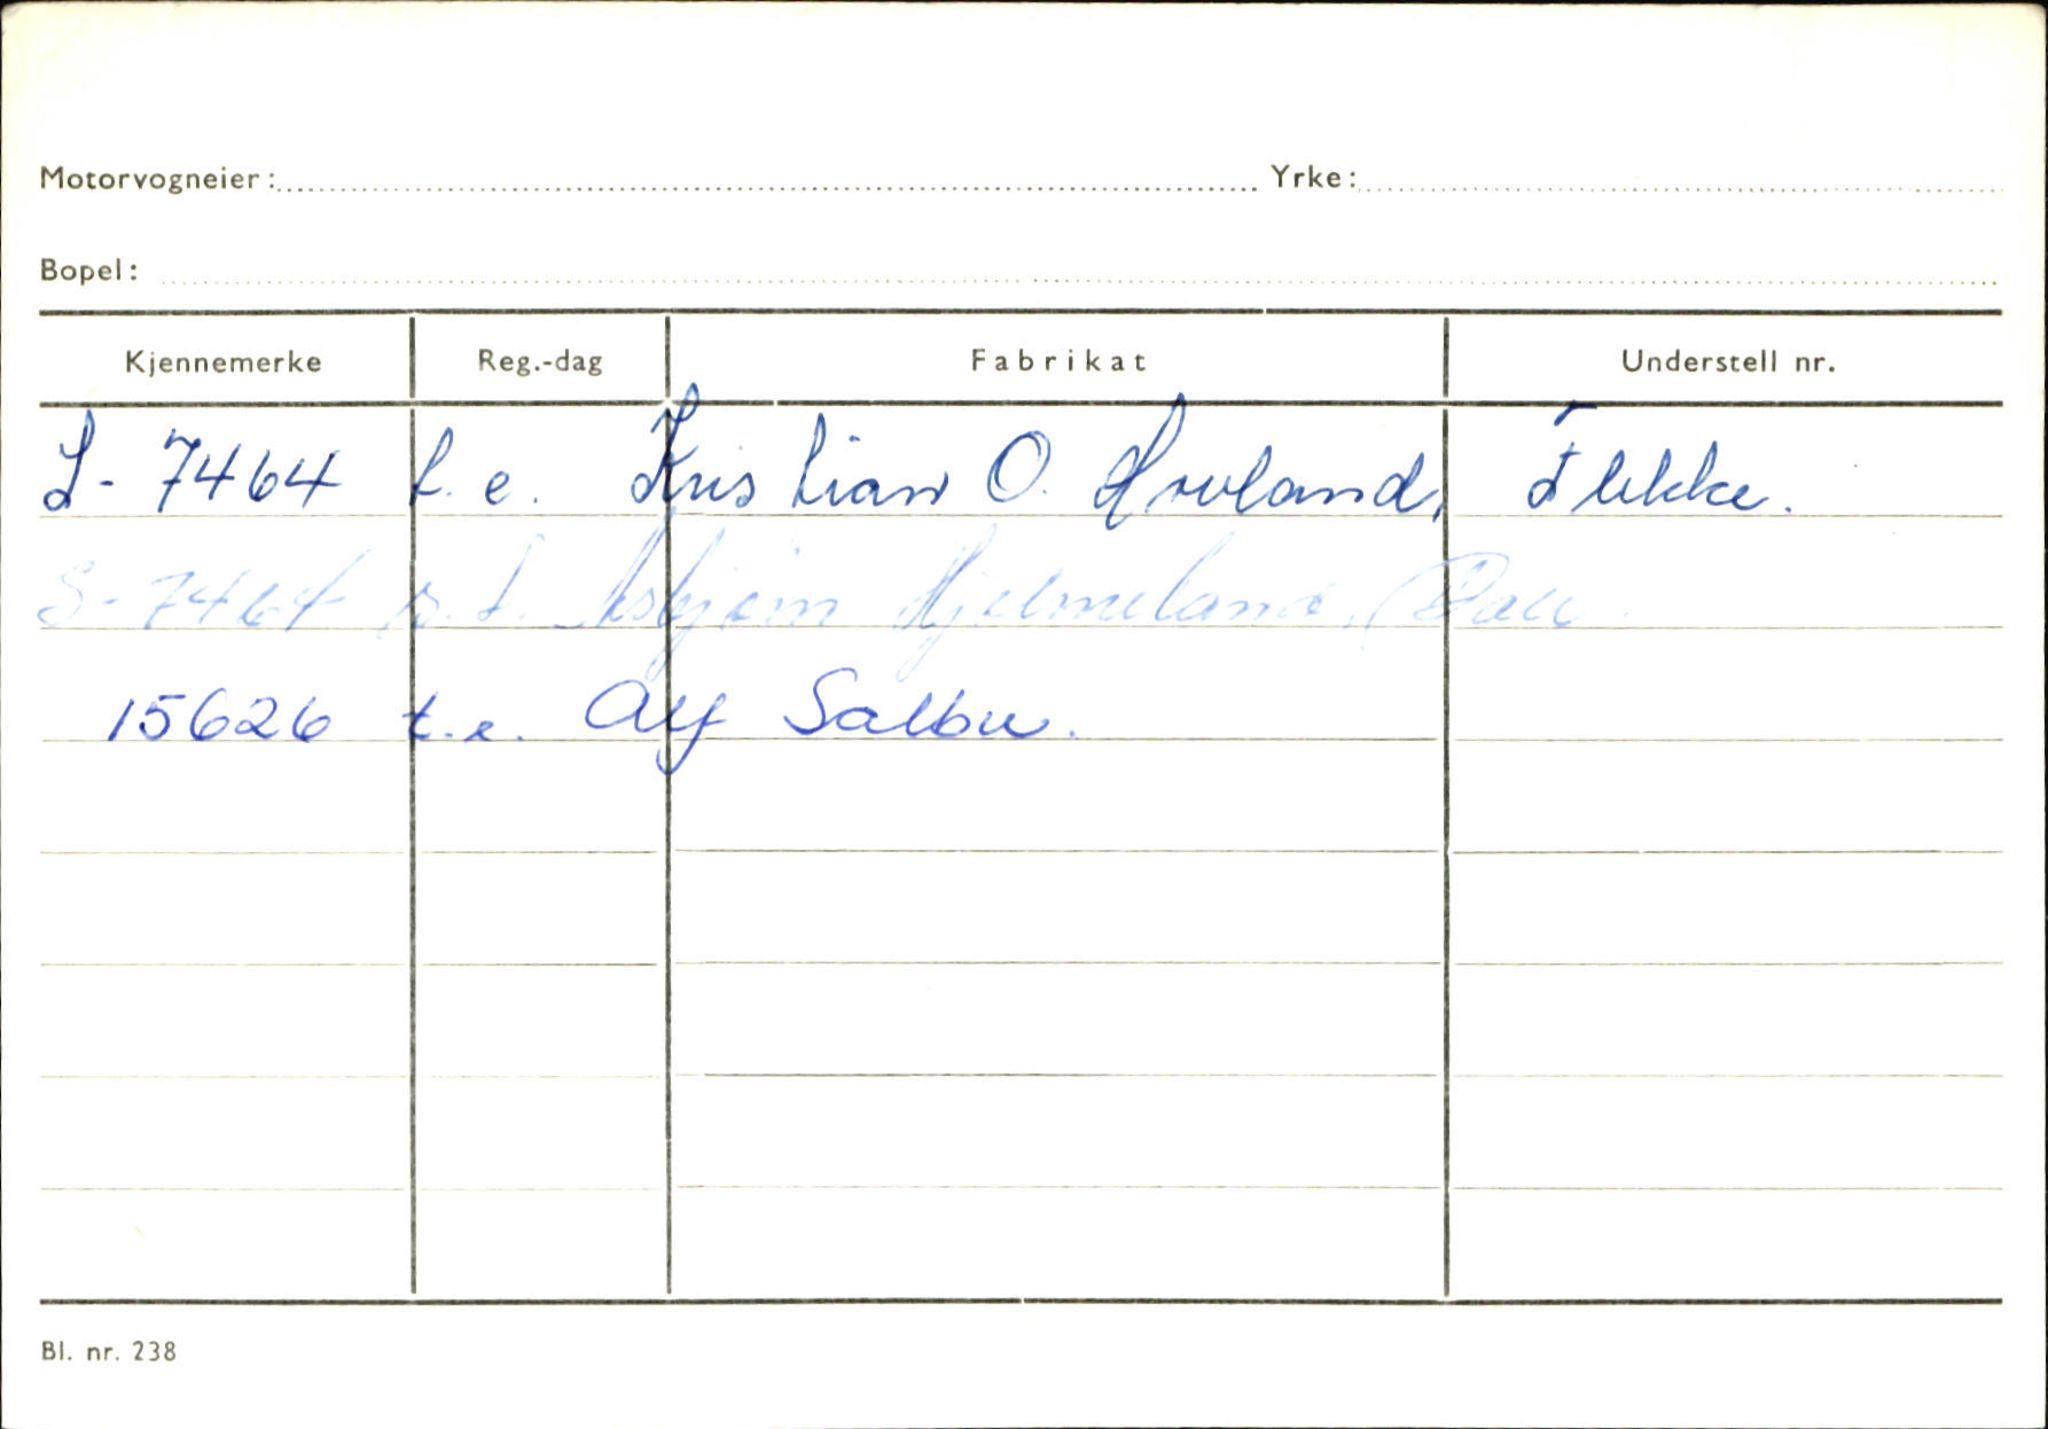 Motorvogneier: Yrke:
Bopel:
Kjennemerke Reg.-dag Fabrikat Understell nr.
S- 7464 t.e. Kristian O. Hovland, Flekke.
S- 7464 Asbjørn Hjelmeland, Dale
15626 t.e. Alf Salbu.
Bl. nr. 238